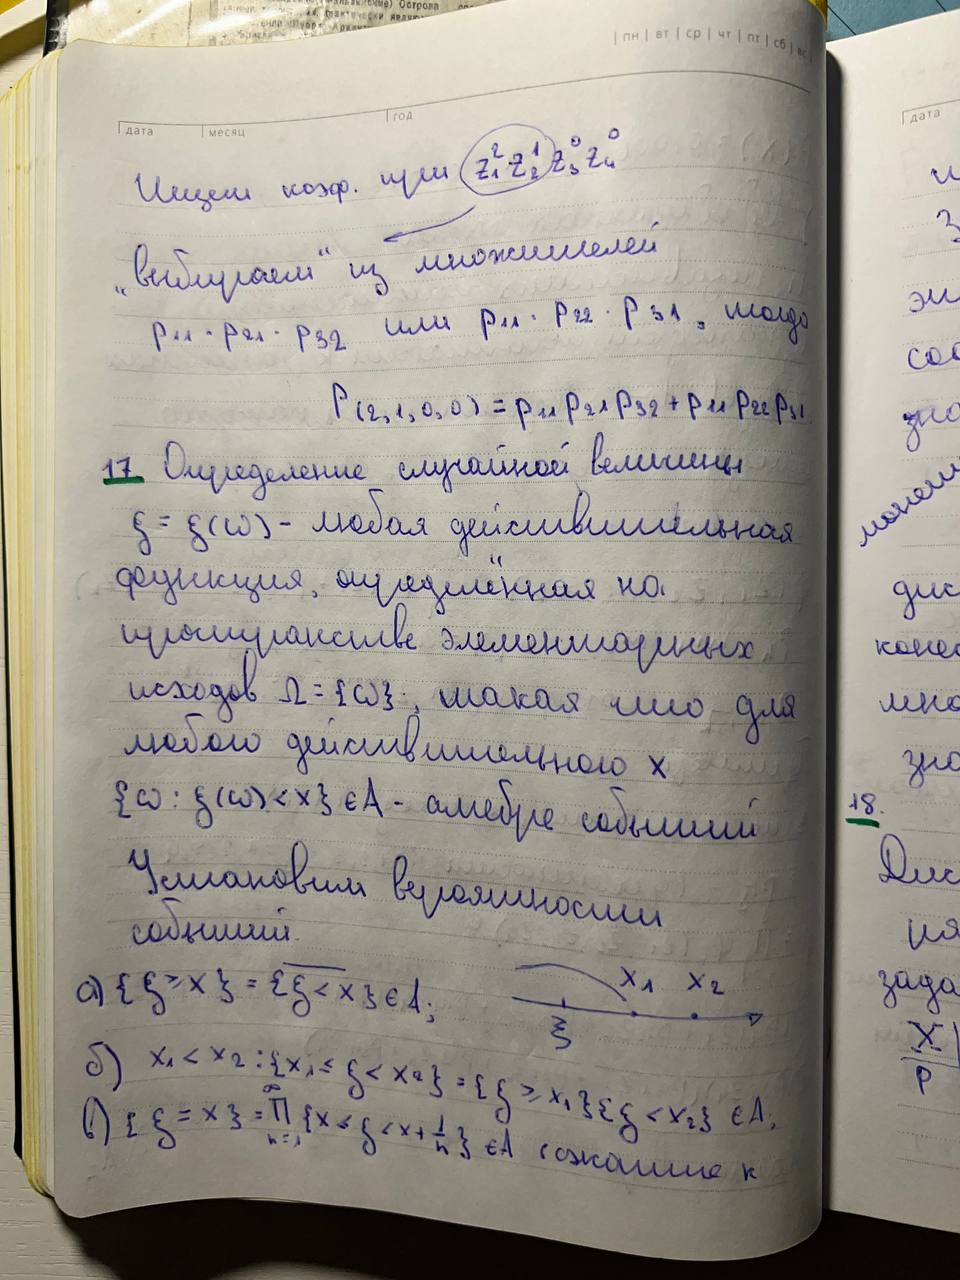 пн | вт | ср | чт | пт | сб | вс
дата месяц год
Ищем коэф. при z₁² z₂¹ z₃⁰ z₄⁰
„выбираем“ из множителей
p₁₁ · p₂₁ · p₃₂ или p₁₁ · p₂₂ · p₃₁, тогда
P(2,1,0,0) = p₁₁p₂₁p₃₂ + p₁₁p₂₂p₃₁
17 Определение случайной величины
ξ = ξ(ω) - любая действительная
функция, определённая на
пространстве элементарных
исходов Ω = {ω}, такая что для
любого действительного x
{ω : ξ(ω) < x} ∈ A - алгебре событий
Установим вероятности
событий.
а) {ξ ≥ x} = {\overline{ξ < x}} ∈ A;
x₁ x₂
ξ
б) x₁ < x₂ : {x₁ ≤ ξ < x₂} = {ξ ≥ x₁}{ξ < x₂} ∈ A,
в) {ξ = x} = ∏_{n=1}^{∞} {x ≤ ξ < x + 1/n} ∈ A (сжатие к
дата
18.
Дис
зада
X
P